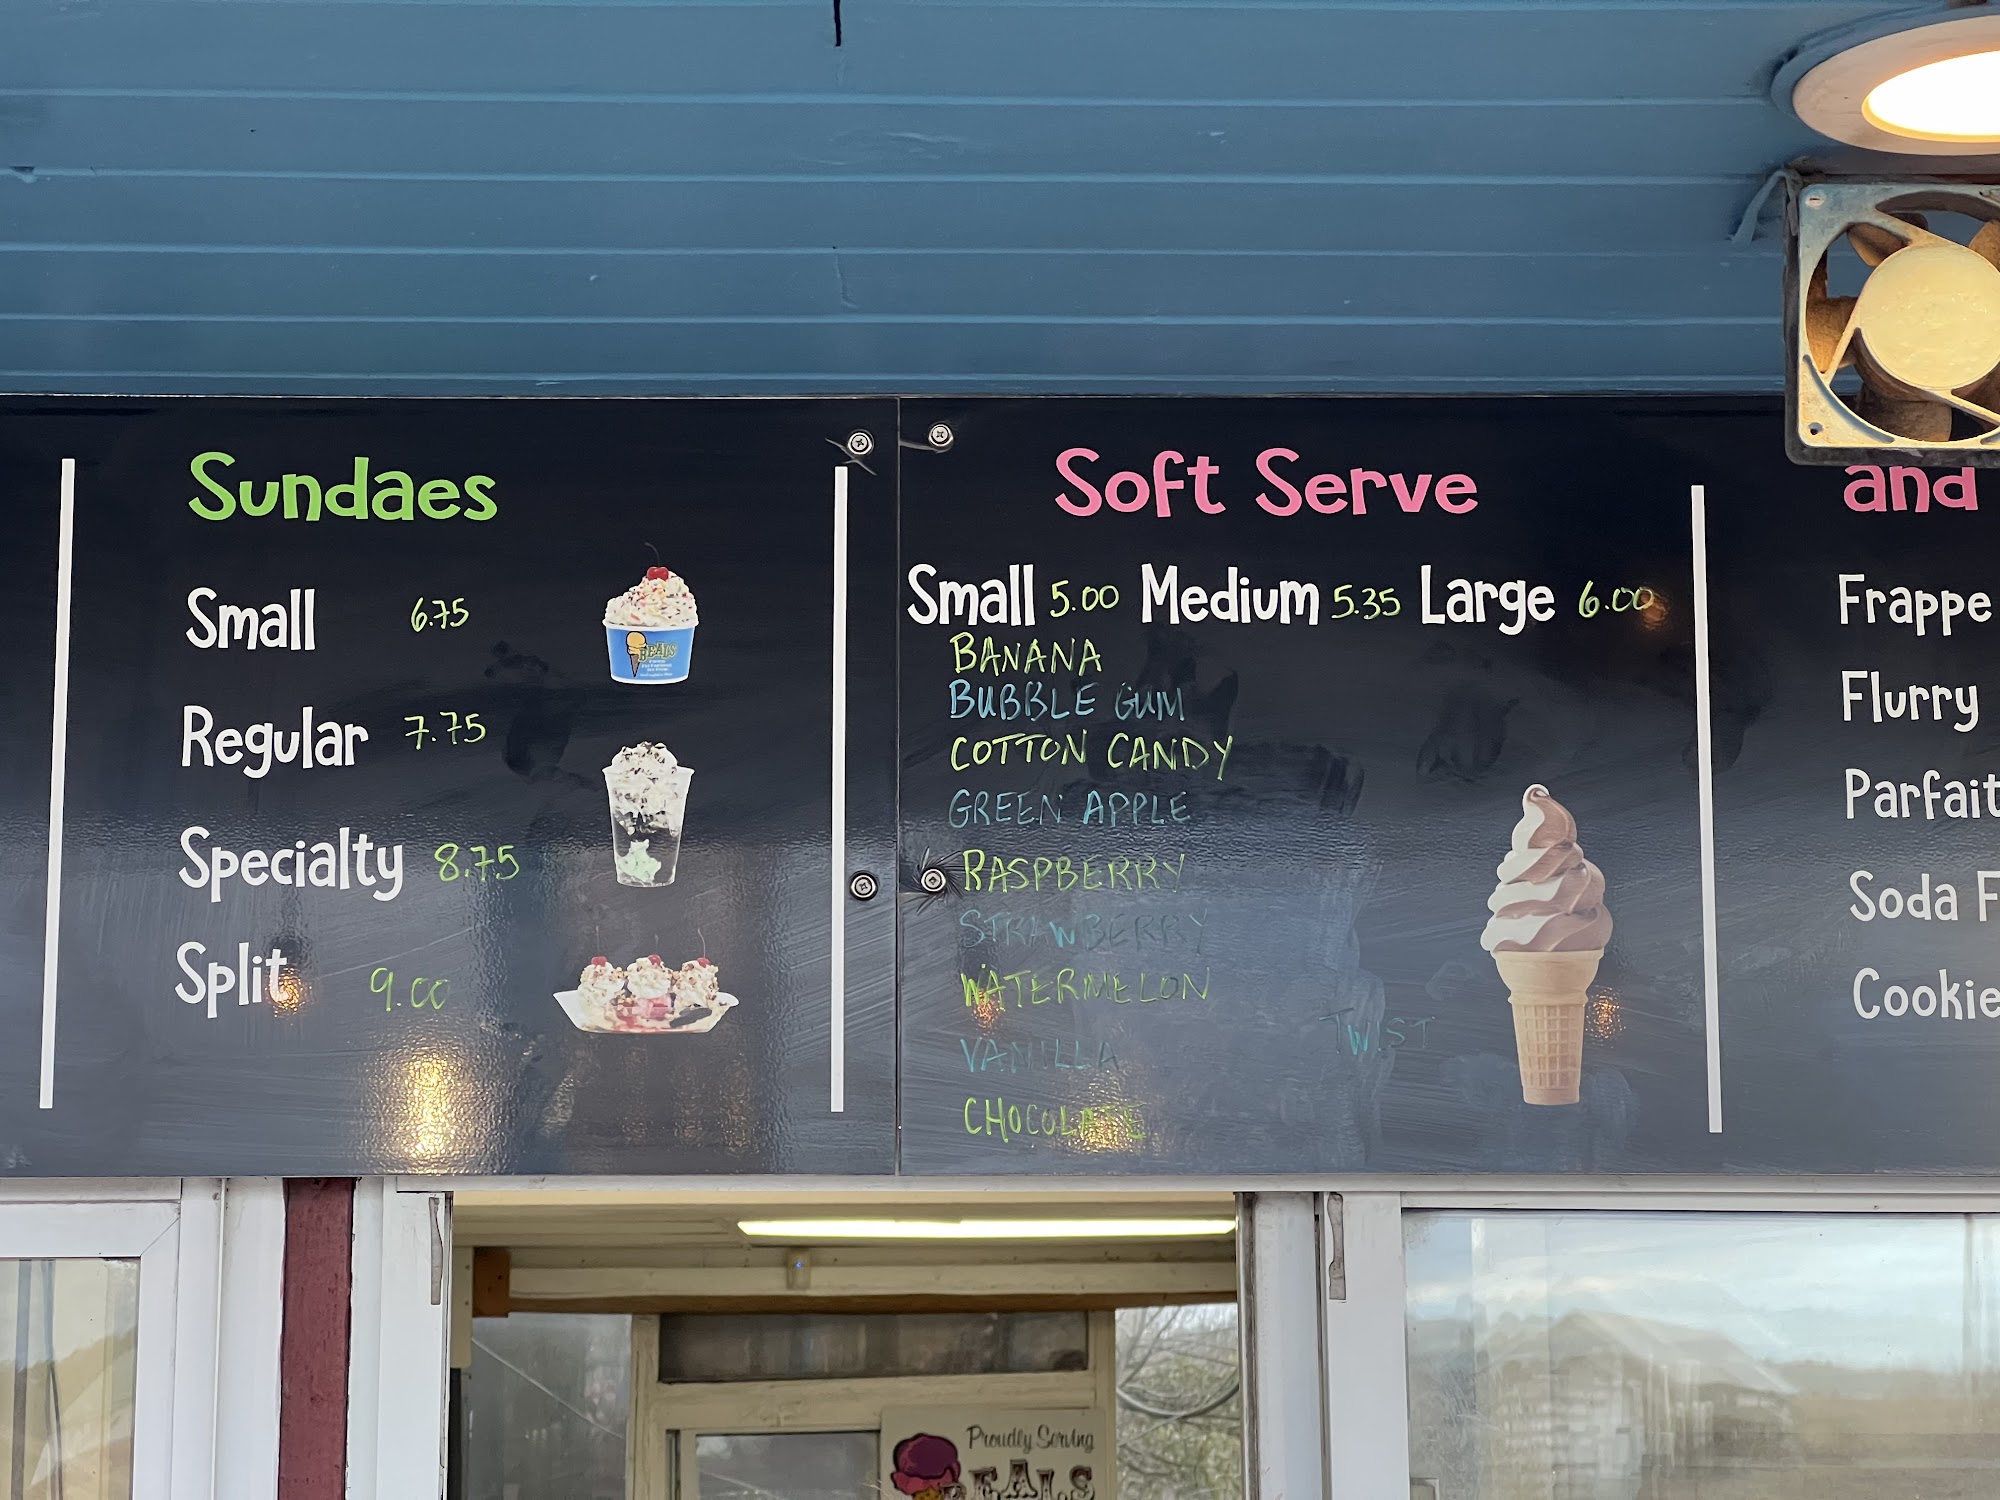 Sundaes
Small 6.75
Regular 7.75
Specialty 8.75
Split 9.00
BEALS
Soft Serve
Small 5.00 Medium 5.35 Large 6.00
BANANA
BUBBLE GUM
COTTON CANDY
GREEN APPLE
RASPBERRY
STRAWBERRY
WATERMELON
VANILLA
TWIST
CHOCOLATE
and
Frappe
Flurry
Parfait
Soda F
Cookie
Proudly Serving
BEALS